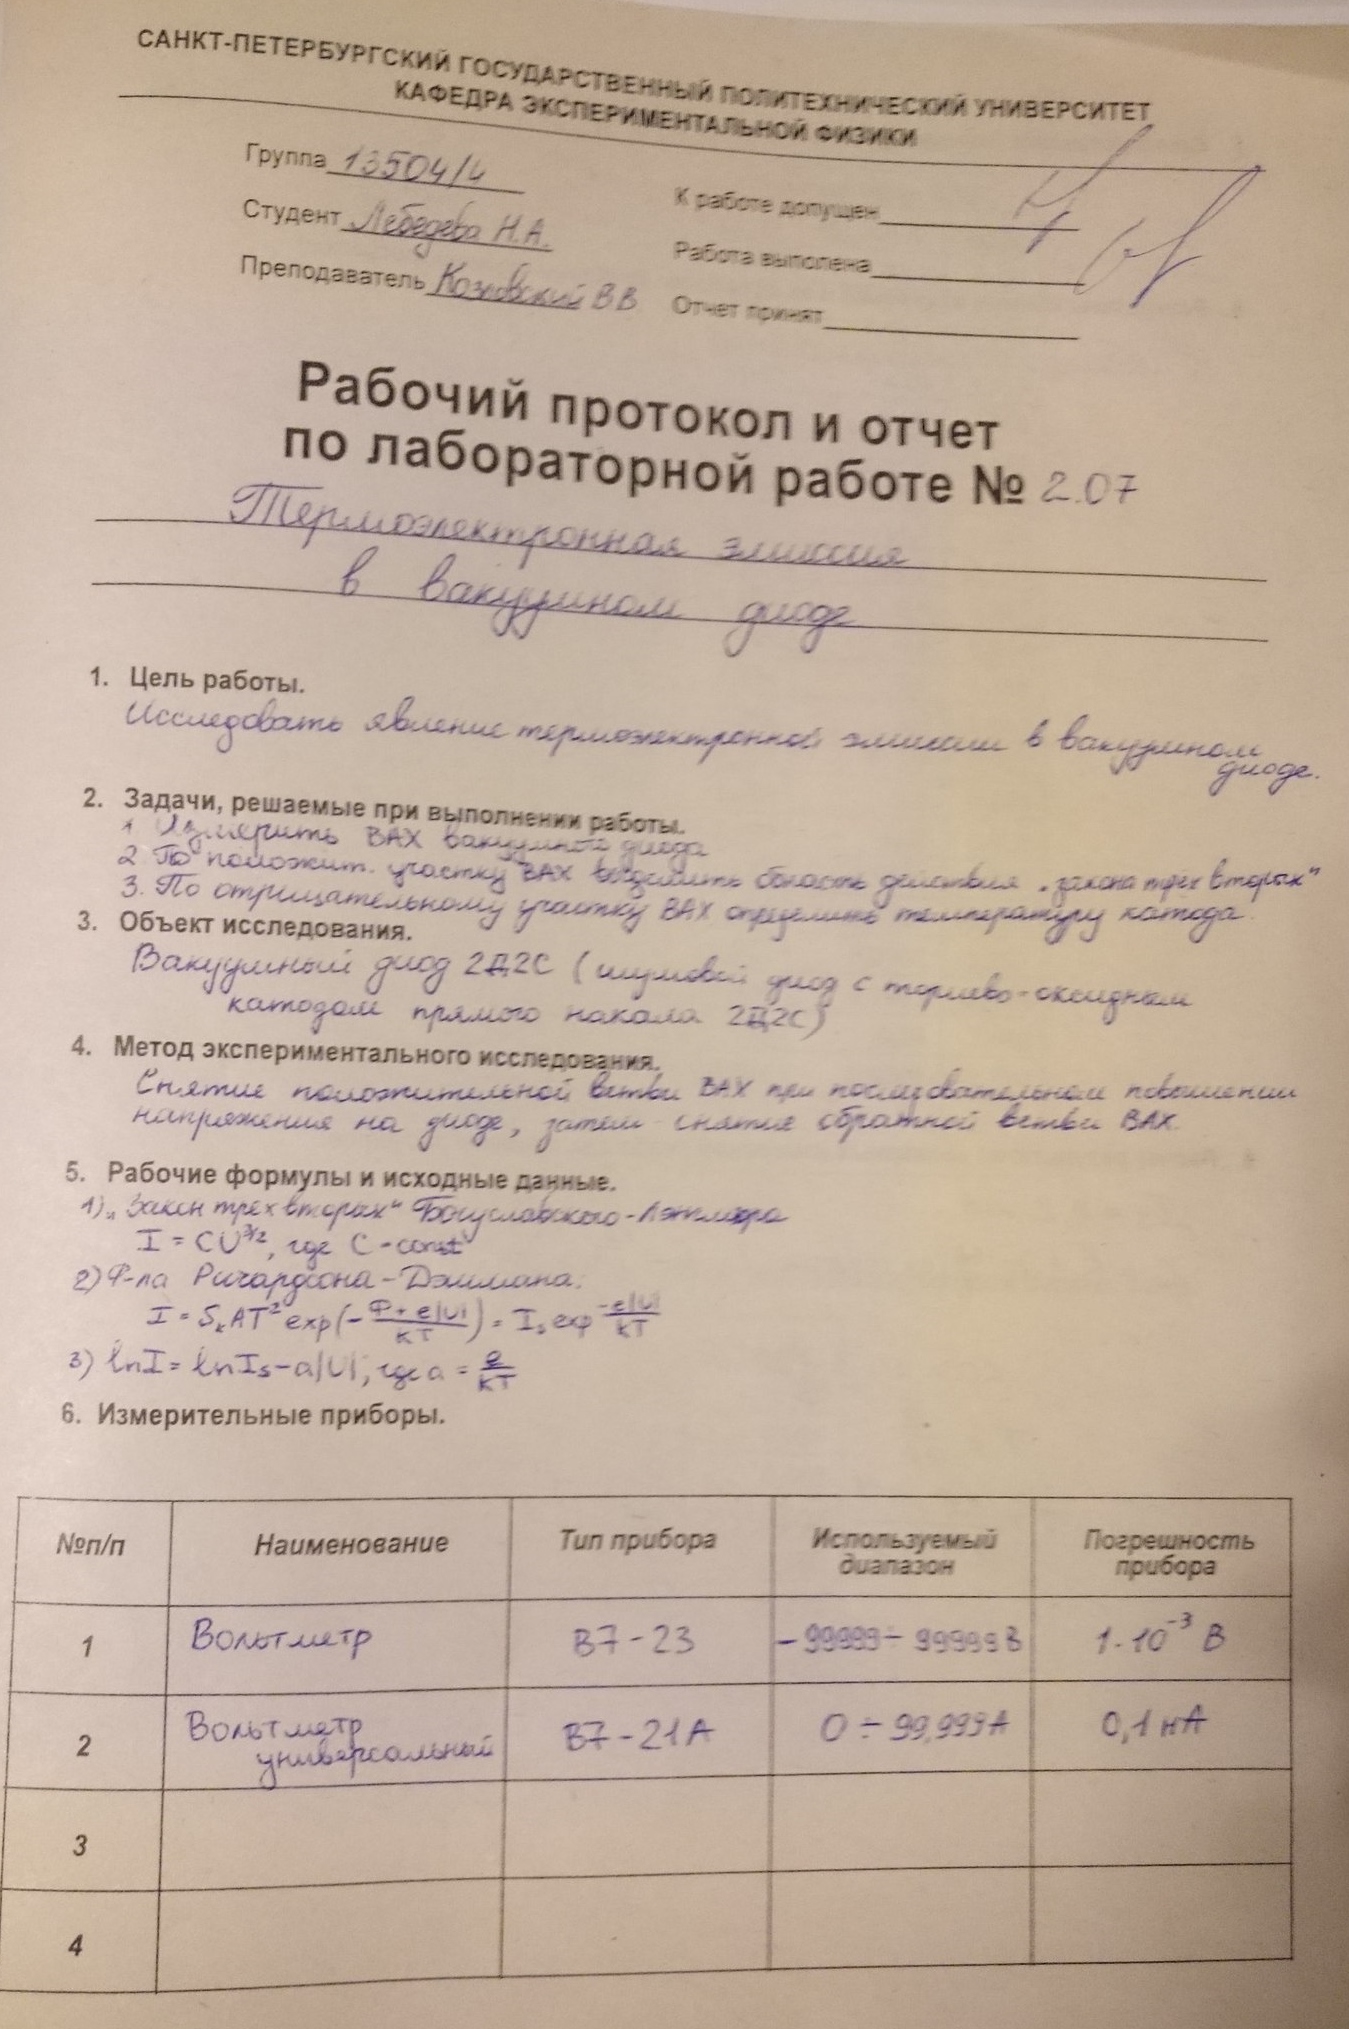 САНКТ-ПЕТЕРБУРГСКИЙ ГОСУДАРСТВЕННЫЙ ПОЛИТЕХНИЧЕСКИЙ УНИВЕРСИТЕТ
КАФЕДРА ЭКСПЕРИМЕНТАЛЬНОЙ ФИЗИКИ
Группа 13504/4
К работе допущен
Студент Лебедева Н.А.
Работа выполена
Преподаватель Козловский В В
Отчет принят
Рабочий протокол и отчет
по лабораторной работе № 2.07
Термоэлектронная эмиссия
в вакуумном диоде
1. Цель работы.
Исследовать явление термоэлектронной эмиссии в вакуумном
диоде.
2. Задачи, решаемые при выполнении работы.
1 Измерить ВАХ вакуумного диода
2 По положит. участку ВАХ выделить область действия „закона трех вторых"
3. По отрицательному участку ВАХ определить температуру катода.
3. Объект исследования.
Вакуумный диод 2Д2С (шумовой диод с ториево-оксидным
катодом прямого накала 2Д2С)
4. Метод экспериментального исследования.
Снятие положительной ветви ВАХ при последовательном повышении
напряжения на диоде, затем снятие обратной ветви ВАХ.
5. Рабочие формулы и исходные данные.
1) „Закон трех вторых" Богуславского-Лэнгмюра
I = CU^3/2, где C - const
2) Ф-ла Ричардсона-Дэшмана:
I = SₖAT² exp(- (Ф + e|U|)/kT) = Iₛ exp -e|U|/kT
3) lnI = lnIs - a|U|, где a = e/kT
6. Измерительные приборы.
№п/п Наименование Тип прибора Используемый диапазон Погрешность прибора
1 Вольтметр В7-23 -99999 ÷ 99999В 1·10⁻³ В
2 Вольтметр универсальный В7-21А 0 ÷ 99,999А 0,1 нА
3
4